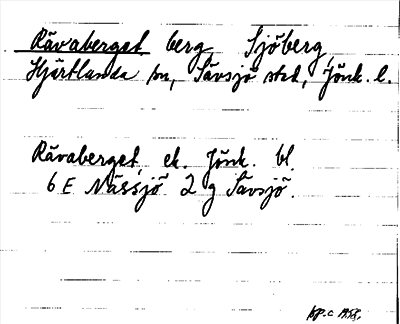 Rävaberget berg, Sjöberg,
Hjärtlanda sn, Sävsjö stad, Jönk. l.
Rävaberget, ek. Jönk. bl.
6 E Nässjö 2 g Sävsjö.